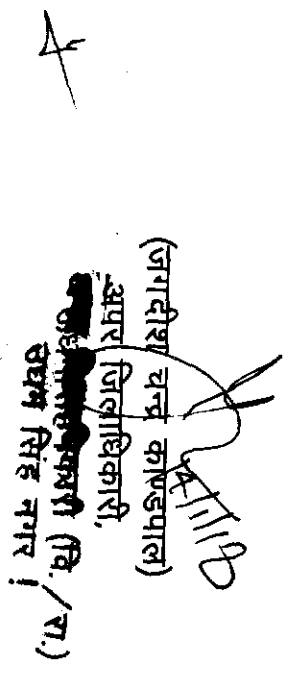 (जगदीश चन्द्र काण्डपाल)
अपर जिलाधिकारी,
(वि./रा.)
उधम सिंह नगर !